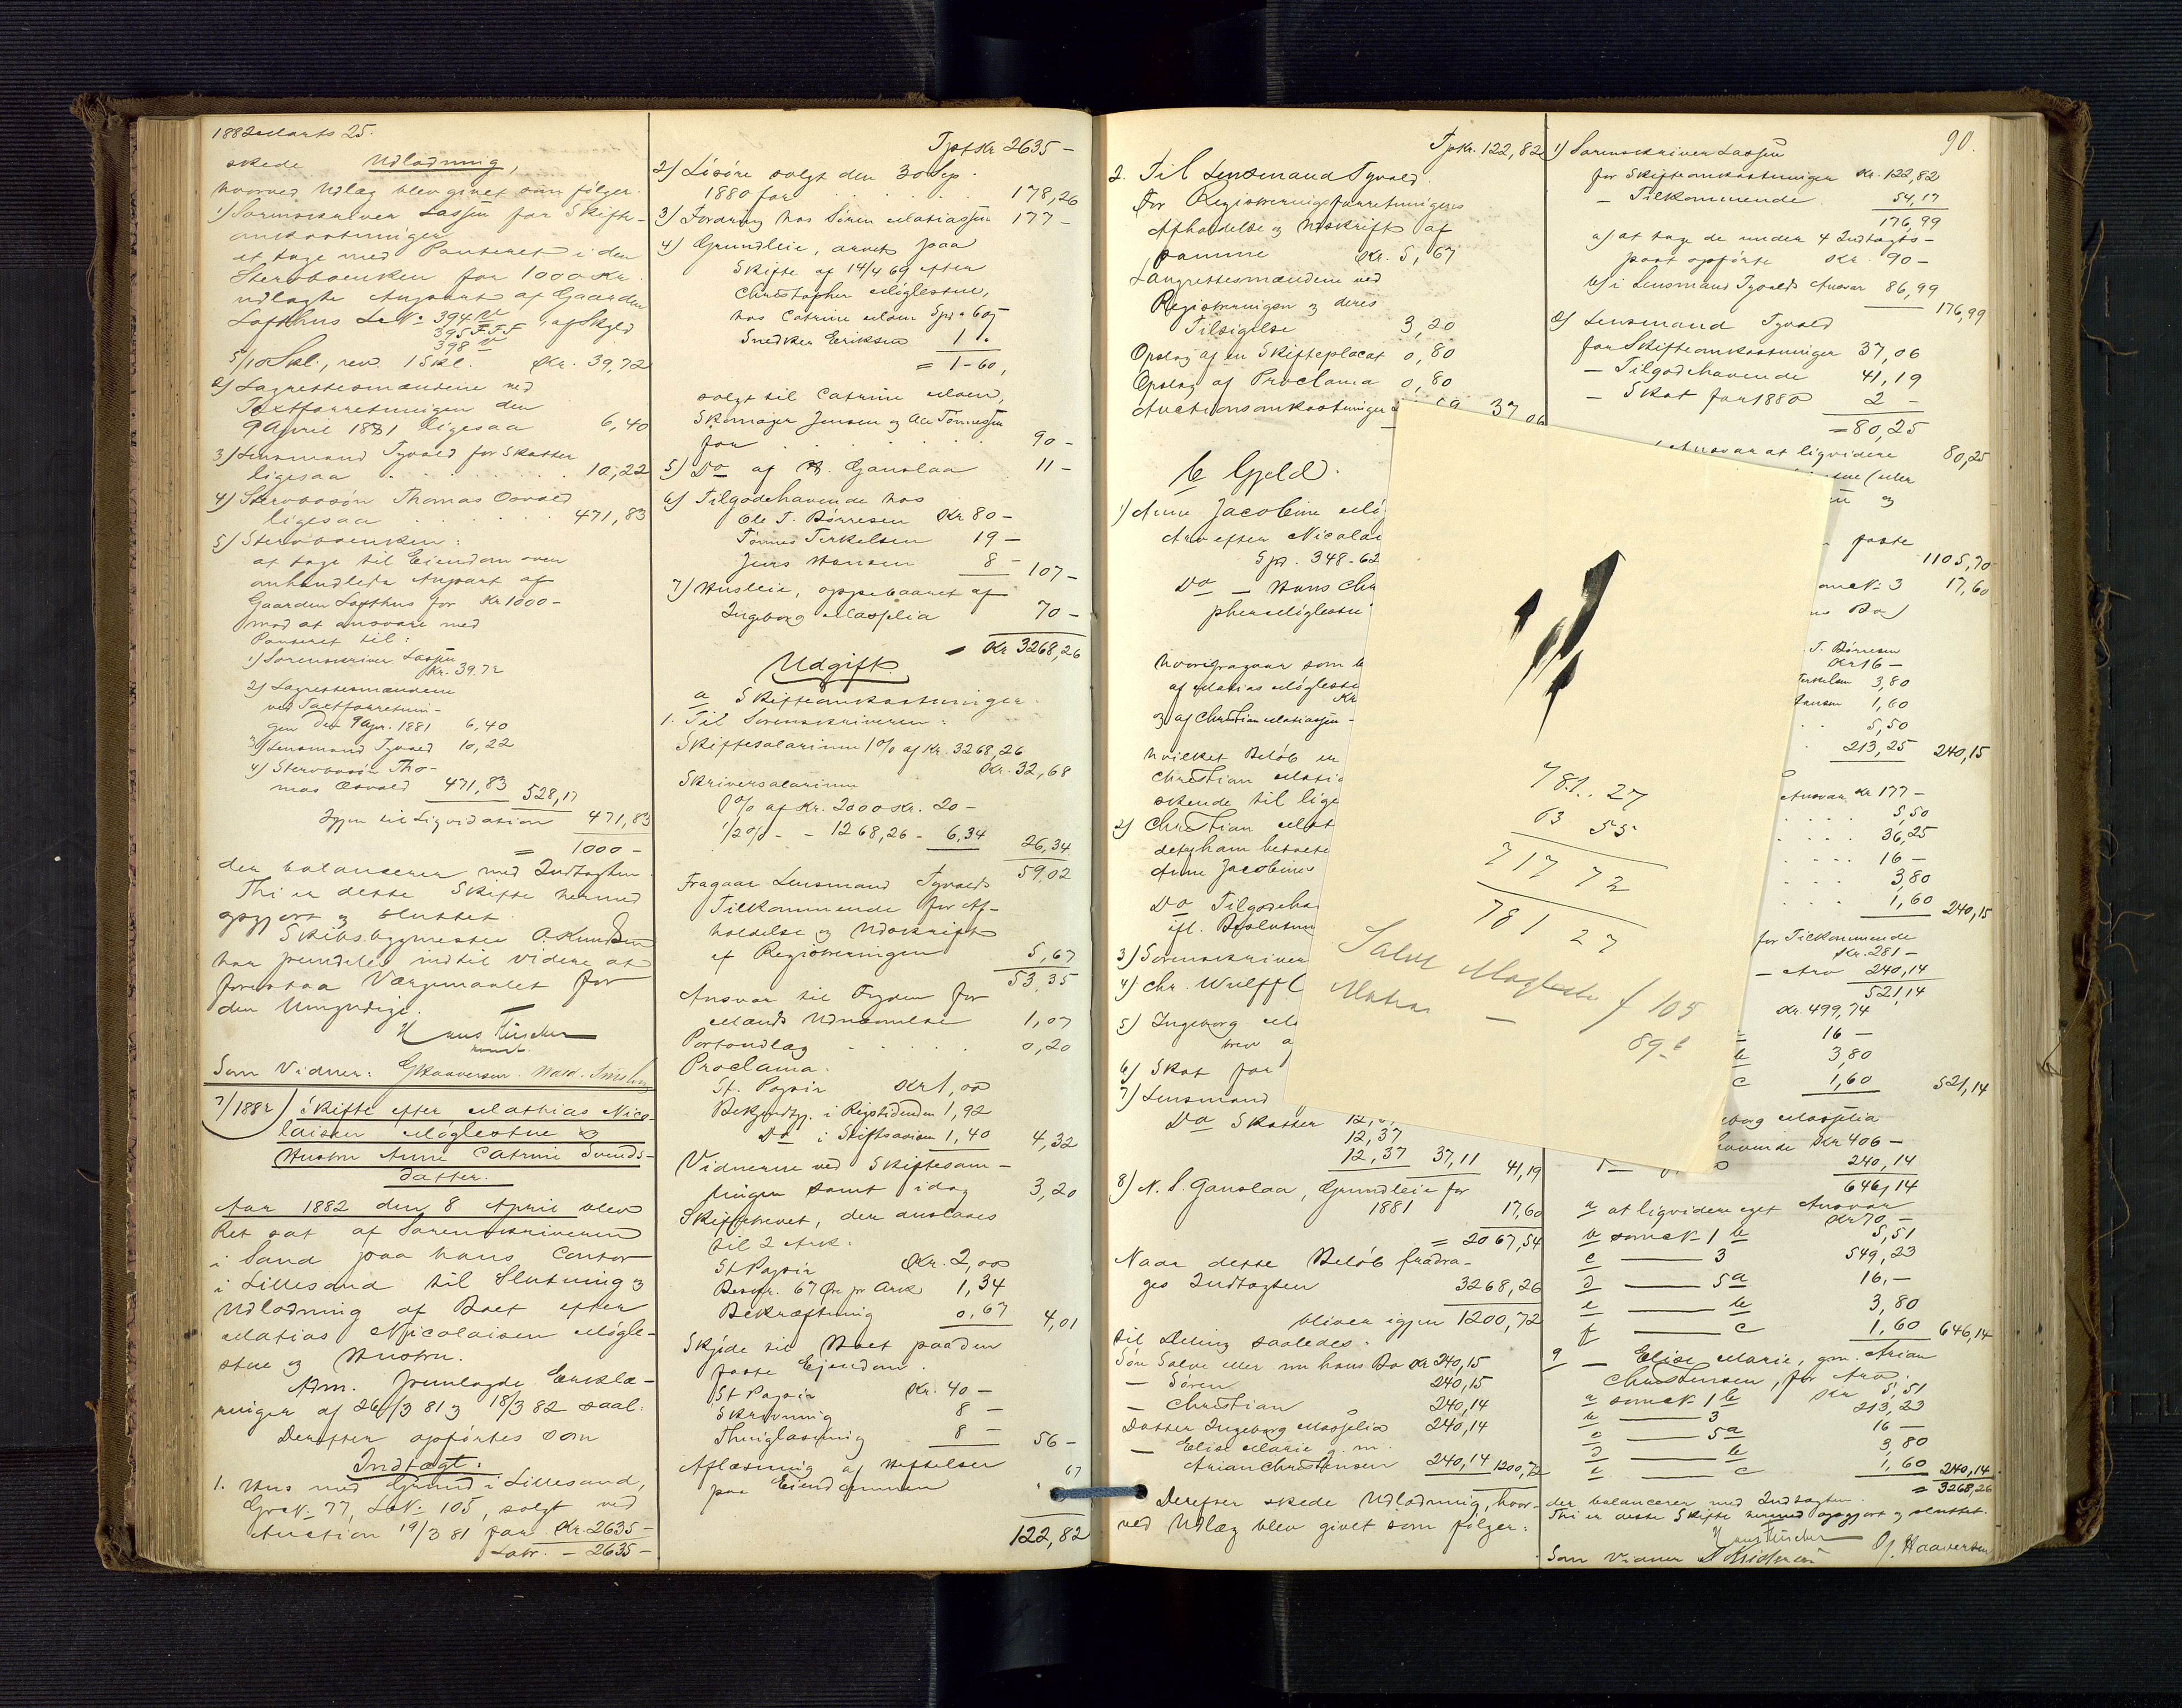 1882 Marts 25.
skede Udlodning,
hvorved Udlæg blev givet som følger:
1) Sorenskriver Lassen for Skifte-
omkostninger
at tage med Panteret i den
Stervboenken for 1000 Kr.
udlagte Anpart af Gaarden
Lofthus L.No 394
395
398
5/10 Skl., rev. 1 Skl. Kr. 39,72
2) Lagrettesmændene ved
Taxtforretningen den
9 April 1881 ligesaa 6,40
3) Lensmand Tyvold for Skatter
ligesaa 10,22
4) Stervbosøn Thomas Osvold
ligesaa 471,83
5) Stervboenken:
at tage til Eiendom oven
anhandlede Anpart af
Gaarden Lofthus for Kr 1000 -
mod at ansvare med
Panteret til:
1) Sorenskriver Lassen
Kr. 39.72
2) Lagrettesmændene
ved Taxtforretnin-
gen den 9 Apr. 1881 6,40
3) Lensmand Tyvold 10,22
4) Stervbosøn Tho-
mas Osvold 471,83 528,17
Igjen til Liqvidation 471,83
= 1000 -
der balancerer med Indtægten.
Thi er dette Skifte hermed
opgjort og sluttet.
Skibsbygmester O. Knudsen
har fremdeles indtil videre at
forestaa Værgemaalet for
den Umyndige.
Hans Fürcher
Som Vidner:
7/1882) Skifte efter Mathias Nico-
laisen Møglestue og
Hustru Anne Catrine Svends-
datter.
Aar 1882 den 8 April blev
Ret sat af Sorenskriveren
i Sand paa hans Contor
i Lillesand til Slutning og
Udlodning af Boet efter
Matias Nicolaisen Møgle-
stue og Hustru.
Adm. fremlagde Erklæ-
ringer af 26/3 81 og 18/3 82 saal:
Derefter opførtes som
Indtægt:
1. Hus med Grund i Lillesand,
GrNo. 77, LNo. 105, solgt ved
Auction 19/3 81 for Kr. 2635 -
Latr. - 2635 -
Tpst Kr 2635 -
2) Løsøre solgt den 30 Sep.
1880 for 178,26
3) Fordring hos Søren Matiasen 177 -
4) Grundleie, arvet paa
Skifte af 14/4 69 efter
Christopher Møglestue,
hos Catrine Moen Spd. - 60
Snedker Eriksen 1 -
= 1-60,
solgt til Catrine Moen,
Skomager Jensen og Aa Tønnesen
for 90 -
5) Do af N. Ganslaa 11 -
6) Tilgodehavende hos
Ole T. Børresen Kr 80 -
Tønnes Terkelsen 19 -
Jens Hansen 8 - 107 -
7) Husleie, oppebaaret af
Ingeborg Maspelia 70 -
= Kr 3268,26
Udgift.
a Skifteomkostninger.
1. Til Sorenskriveren:
Skiftesalarium 1% af Kr. 3268,26
Kr. 32,68
Skriversalarium
1% af Kr. 2000 Kr. 20 -
1/2% - - 1268,26 - 6,34 26,34
59,02
Fragaar Lensmand Tyvolds
Tilkommende for Af-
holdelse og Udskrift
af Registreringen 5,67
53,35
Ansvar til Fogden for
Mænds Udnævnelse 1,07
Portoudlæg 0,20
Proclama.
St. Papir Kr 1,00
Bekjendtg. i Rigstidenden 1,92
Do i Stiftsavisen 1,40 4,32
Vidnerne ved Skiftesam-
lingen samt idag 3,20
Skiftebrevet, der anslaaes
til 2 Ark.
St Papir Kr. 2,00
Beskr. 67 Øre pr Ark 1,34
Bekræftning 0,67 4,01
Skjøde til Boet paa den
faste Eiendom.
St Papir Kr. 40 -
Skrivning 8 -
Thinglæsning 8 - 56 -
Aflæsning af Heftelser
paa Eiendommen 67
122,82
Tpst Kr. 122,82
2. Til Lensmand Tyvold.
For Registreringsforretningens
Afholdelse og Udskrift af
samme Kr. 5,67
Laugrettesmændene ved
Registreringen og deres
Tilsigelse 3,20
Opslag af en Skifteplacat 0,80
Opslag af Proclama 0,80
Auctionsomkostninger 37,06
b Gjeld.
1) Anne Jacobine
Arv efter Nicolai
Spd. 348-62
Do - Hans Chr
pher Møglestu
hvorfra gaar som
af Matias Møglestu
Kr
og af Christian Matiasen -
hvilket Beløb er
Christian Matia
skende til lige
2) Christian Mat
det ham betroede
Anne Jacobine
Do Tilgodeha
ifl. Beslutnin
3) Sorenskriver
4) Chr. Wulff
5) Ingeborg Ma
6) Skat for
7) Lensmand
Do Skatter
12,37
12,37 37,11 41,19
8) N. S. Ganslaa, Grundleie for
1881 17,60
= 2067,54
Naar dette Beløb fradra-
ges Indtægten 3268,26
bliver igjen 1200,72
til Deling saaledes:
Søn Salve eller nu hans Bo Kr 240,15
- Søren 240,15
- Christian 240,14
Datter Ingeborg Maspelia 240,14
- Elise Marie g. m.
Arian Christensen 240,14 1200,72
Derefter skede Udlodning, hvor-
ved Udlæg blev givet som følger:
781.27
63 55
717 72
781 27
f 105
89 b
90.
1) Sorenskriver Lassen
for Skifteomkostninger Kr. 122,82
- Tilkommende 54,17
176,99
a) at tage de under 4 Indtægts-
post opførte Kr. 90 -
b) i Lensmand Tyvolds Ansvar 86,99
176,99
2) Lensmand Tyvold
for Skifteomkostninger 37,06
- Tilgodehavende 41,19
- Skat for 1880 2 -
= 80,25
Ansvar at liqvidere 80,25
og
1105,70
som No. 3 17,60
T. Børresen
Kr 16 -
Terkelsen 3,80
Hansen 1,60
5,50
213,25 240,15
Ansvar Kr 177 -
5,50
36,25
16 -
3,80
1,60 240,15
for Tilkommende
Kr. 281 -
- Arv 240,14
521,14
Kr. 499,74
16 -
b 3,80
c 1,60 521,14
Maspelia
havende Kr 406 -
240,14
646,14
a at liqvidere eget Ansvar
Kr 70 -
b som No. 1 b 5,51
c — 3 549,23
d — 5 a 16, -
e — b 3,80
f — c 1,60 646,14
9 - Elise Marie, gm. Arian
Christensen, for Arv.
a som No. 1 b Kr 5,51
b — 3 213,23
c — 5 a 16 -
d — b 3,80
e — c 1,60 240,14
= 3268,26
der balancerer med Indtægten.
Thi er dette Skifte hermed opgjort og sluttet.
Hans Fürcher
Som Vidner O. Haaversen